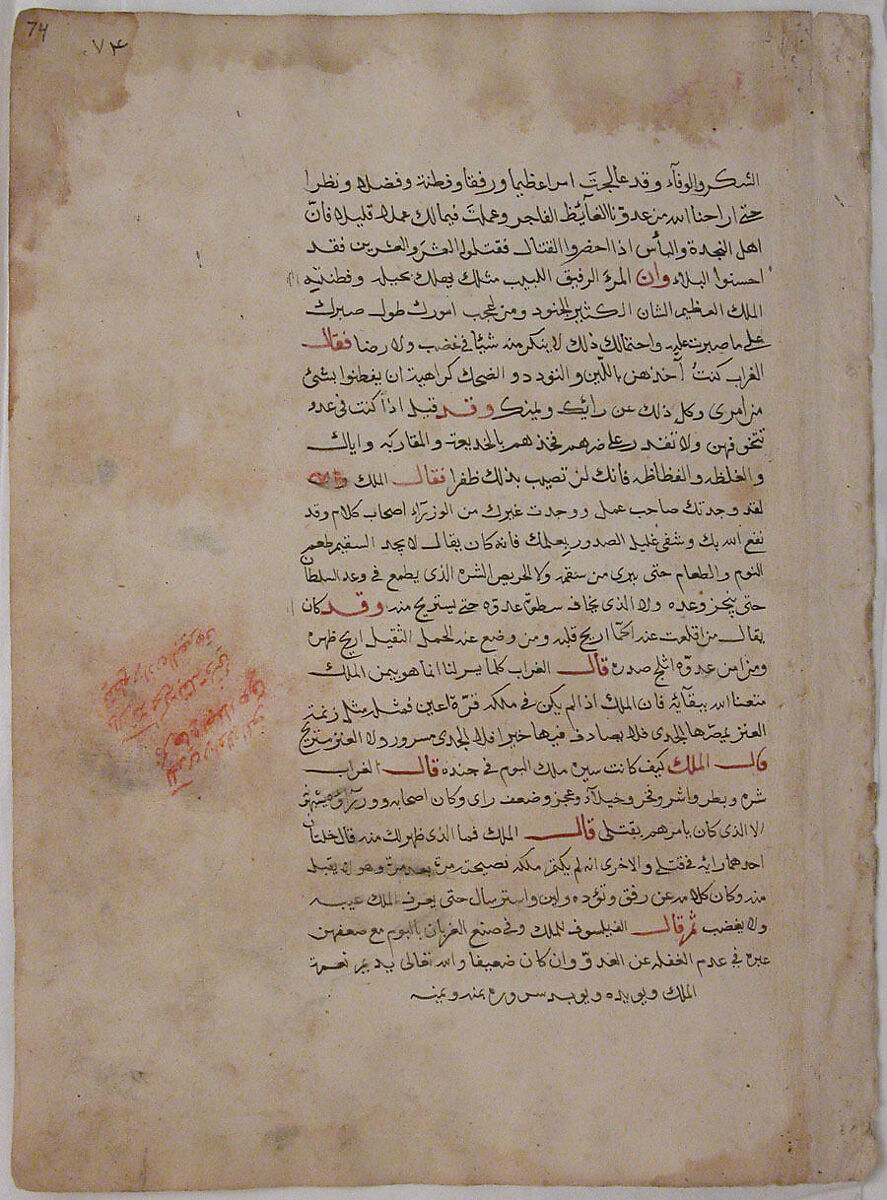 74
٧٤
الشكر والوفآء وقد عالجتَ امرا عظيما ورفقا وفطنة وفضلا ونظرا
حتى اراحنا الله من عدوّنا الغآيظ الفاجر وعملتَ فيما لك عملا قليلا فانّ
اهل النجدة والبأس اذا احضروا القتال فقتلوا العشرَ والعشرين فقد
احسنوا البلاء وان المرء الرفيق اللبيب مثلك يهلك بحيله وفطنته
الملك العظيم الشان الكثير الجنود ومن اعجب امورك طول صبرك
على ما صبرت عليه واحتمالك ذلك لا ينكر منه شيئا في غضب ولا رضا فقال
الغراب كنتُ آخذهن باللّين والتودد والضحك كراهية ان يفطنوا بشئ
من امرى وكل ذلك عن رائك ويمنك وقد قيل اذا كنت في عدو
تتخوفهن ولا تقدر على ضرهم فخذهم بالخديعة والمقاربه واياك
والغلظه والفظاظه فانك لن تصيب بذلك ظفرا فقال الملك
لقد وجدتك صاحب عمل ووجدت غيرك من الوزرآء اصحاب كلام وقد
نفع الله بك وشفى غليل الصدور بعملك فانه كان يقال لا يجد السقيم طعم
النوم والطعام حتى يبرى من سقمه ولا الحريص الشره الذى يطمع في وعد السلطان
حتى ينجز وعده ولا الذى يخاف سطوة عدوّه حتى يستريح منه وقد كان
يقال من اقلعت عنه الحمّا اريح قلبه ومن وضع عنه الحمل الثقيل اريح ظهره
ومن امن عدوّه اثلج صدره قال الغراب كلما يسر لنا انما هو بيمن الملك
متعنا الله ببقآيه فان الملك اذا لم يكن في ملكه قرّة اعين فمثله مثل زنمة
العنز يمصّها الجدى فلا يصادف فيها خيرا فلا الجدى مسرور ولا العنز مستريح
قال الملك كيف كانت سيره ملك البوم في جنده قال الغراب
شره وبطر واشر وفخر وخيلآء وعجز وضعف راى وكان اصحابه ووزرآؤه
الا الذى كان يامرهم بقتلى قال الملك فما الذى ظهر لك منه قال خلتان
احدهما رايه في قتلى والاخرى انه لم يكتم ملكه نصيحة مرة بعد مرة وهو لا يقبل
منه وكان كلامه عن رفق وتؤده ولين واسترسال حتى يعرف الملك عيبه
ولا يغضب ثم قال الفيلسوف للملك وفي صنع الغربان بالبوم مع ضعفهن
عبره في عدم الغفله عن العدوّ وان كان ضعيفا والله تعالى يديم نعمة
الملك ويويده ويوبد سروره بمنه ويمنه